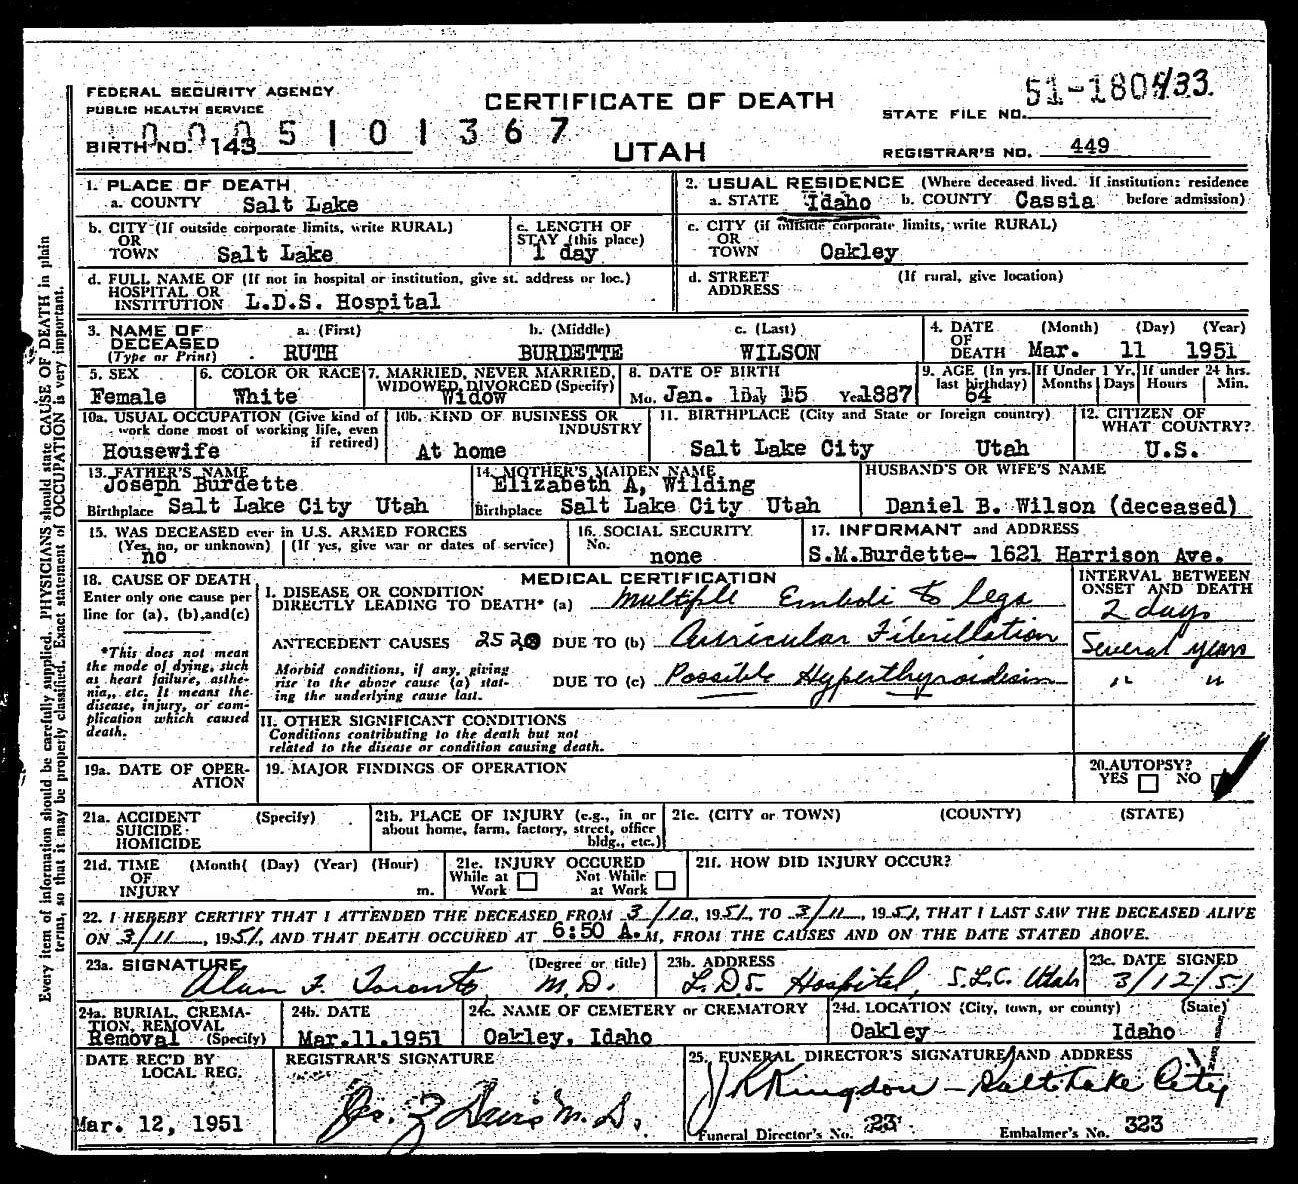 FEDERAL SECURITY AGENCY
PUBLIC HEALTH SERVICE
CERTIFICATE OF DEATH
STATE FILE NO. 51-180433
BIRTH NO. 143
5 1 0 1 3 6 7
UTAH
REGISTRAR'S NO. 449
1. PLACE OF DEATH
a. COUNTY Salt Lake
2. USUAL RESIDENCE (Where deceased lived. If institution: residence before admission)
a. STATE Idaho b. COUNTY Cassia
b. CITY (If outside corporate limits, write RURAL)
OR
TOWN Salt Lake
c. LENGTH OF
STAY (this place)
1 day
c. CITY (if outside corporate limits, write RURAL)
OR
TOWN Oakley
d. FULL NAME OF (If not in hospital or institution, give st. address or loc.)
HOSPITAL OR
INSTITUTION L.D.S. Hospital
d. STREET (If rural, give location)
ADDRESS
3. NAME OF
DECEASED
(Type or Print)
a. (First) b. (Middle) c. (Last)
RUTH BURDETTE WILSON
4. DATE (Month) (Day) (Year)
OF
DEATH Mar. 11 1951
5. SEX
Female
6. COLOR OR RACE
White
7. MARRIED, NEVER MARRIED,
WIDOWED, DIVORCED (Specify)
Widow
8. DATE OF BIRTH
Mo. Jan. Day 15 Year 1887
9. AGE (In yrs. last birthday)
64
If Under 1 Yr.
Months Days
If under 24 hrs.
Hours Min.
10a. USUAL OCCUPATION (Give kind of
work done most of working life, even
if retired)
Housewife
10b. KIND OF BUSINESS OR
INDUSTRY
At home
11. BIRTHPLACE (City and State or foreign country)
Salt Lake City Utah
12. CITIZEN OF
WHAT COUNTRY?
U.S.
13. FATHER'S NAME
Joseph Burdette
Birthplace Salt Lake City Utah
14. MOTHER'S MAIDEN NAME
Elizabeth A, Wilding
Birthplace Salt Lake City Utah
HUSBAND'S OR WIFE'S NAME
Daniel B. Wilson (deceased)
15. WAS DECEASED ever in U.S. ARMED FORCES
(Yes, no, or unknown) (If yes, give war or dates of service)
no
16. SOCIAL SECURITY
No.
none
17. INFORMANT and ADDRESS
S.M.Burdette- 1621 Harrison Ave.
18. CAUSE OF DEATH
Enter only one cause per
line for (a), (b), and(c)
*This does not mean
the mode of dying, such
as heart failure, asthe-
nia, etc. It means the
disease, injury, or com-
plication which caused
death.
MEDICAL CERTIFICATION
I. DISEASE OR CONDITION
DIRECTLY LEADING TO DEATH* (a) Multiple Emboli to legs
ANTECEDENT CAUSES 2520 DUE TO (b) Auricular Fibrillation
Morbid conditions, if any, giving
rise to the above cause (a) stat-
ing the underlying cause last.
DUE TO (c) Possible Hyperthyroidism
INTERVAL BETWEEN
ONSET AND DEATH
2 days
Several years
" "
II. OTHER SIGNIFICANT CONDITIONS
Conditions contributing to the death but not
related to the disease or condition causing death.
19a. DATE OF OPER-
ATION
19. MAJOR FINDINGS OF OPERATION
20. AUTOPSY?
YES NO
21a. ACCIDENT (Specify)
SUICIDE
HOMICIDE
21b. PLACE OF INJURY (e.g., in or
about home, farm, factory, street, office
bldg., etc.)
21c. (CITY or TOWN) (COUNTY) (STATE)
21d. TIME (Month( (Day) (Year) (Hour)
OF
INJURY m.
21e. INJURY OCCURED
While at Work Not While at Work
21f. HOW DID INJURY OCCUR?
22. I HEREBY CERTIFY THAT I ATTENDED THE DECEASED FROM 3/10, 1951, TO 3/11, 1951, THAT I LAST SAW THE DECEASED ALIVE
ON 3/11, 1951, AND THAT DEATH OCCURED AT 6:50 A.M, FROM THE CAUSES AND ON THE DATE STATED ABOVE.
23a. SIGNATURE (Degree or title)
Alan F. Toronto M.D.
23b. ADDRESS
L.D.S. Hospital, S.L.C. Utah
23c. DATE SIGNED
3/12/51
24a. BURIAL, CREMA-
TION, REMOVAL
Removal (Specify)
24b. DATE
Mar.11.1951
24c. NAME OF CEMETERY or CREMATORY
Oakley, Idaho
24d. LOCATION (City, town, or county) (State)
Oakley Idaho
DATE REC'D BY
LOCAL REG.
Mar. 12, 1951
REGISTRAR'S SIGNATURE
25. FUNERAL DIRECTOR'S SIGNATURE AND ADDRESS
Salt Lake City
Funeral Director's No. 23
Embalmer's No. 323
Every item of information should be carefully supplied. PHYSICIANS should state CAUSE OF DEATH in plain
terms, so that it may be properly classified. Exact statement of OCCUPATION is very important.